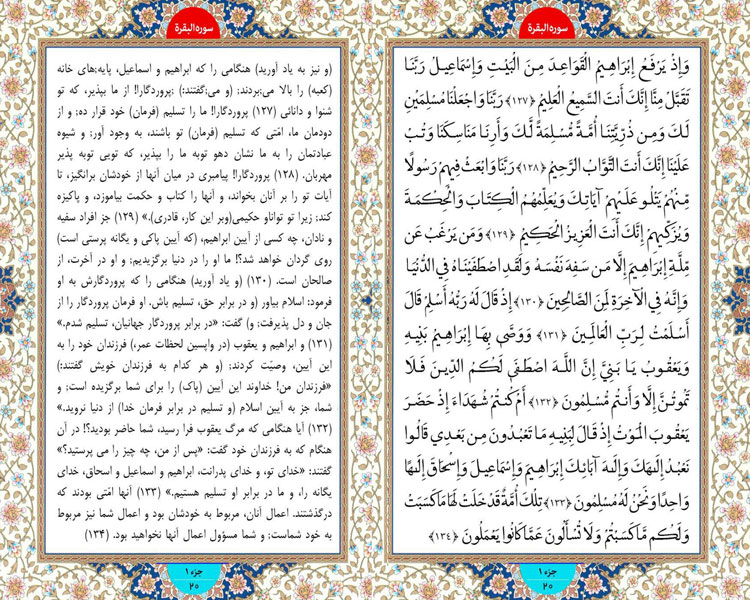 سوره البقرة
وَإِذْ يَرْفَعُ إِبْرَاهِيمُ الْقَوَاعِدَ مِنَ الْبَيْتِ وَإِسْمَاعِيلُ رَبَّنَا
تَقَبَّلْ مِنَّا إِنَّكَ أَنتَ السَّمِيعُ الْعَلِيمُ ﴿١٢٧﴾ رَبَّنَا وَاجْعَلْنَا مُسْلِمَيْنِ
لَكَ وَمِن ذُرِّيَّتِنَا أُمَّةً مُّسْلِمَةً لَّكَ وَأَرِنَا مَنَاسِكَنَا وَتُبْ
عَلَيْنَا إِنَّكَ أَنتَ التَّوَّابُ الرَّحِيمُ ﴿١٢٨﴾ رَبَّنَا وَابْعَثْ فِيهِمْ رَسُولًا
مِّنْهُمْ يَتْلُو عَلَيْهِمْ آيَاتِكَ وَيُعَلِّمُهُمُ الْكِتَابَ وَالْحِكْمَةَ
وَيُزَكِّيهِمْ إِنَّكَ أَنتَ الْعَزِيزُ الْحَكِيمُ ﴿١٢٩﴾ وَمَن يَرْغَبُ عَن
مِّلَّةِ إِبْرَاهِيمَ إِلَّا مَن سَفِهَ نَفْسَهُ وَلَقَدِ اصْطَفَيْنَاهُ فِي الدُّنْيَا
وَإِنَّهُ فِي الْآخِرَةِ لَمِنَ الصَّالِحِينَ ﴿١٣٠﴾ إِذْ قَالَ لَهُ رَبُّهُ أَسْلِمْ قَالَ
أَسْلَمْتُ لِرَبِّ الْعَالَمِينَ ﴿١٣١﴾ وَوَصَّى بِهَا إِبْرَاهِيمُ بَنِيهِ
وَيَعْقُوبُ يَا بَنِيَّ إِنَّ اللَّهَ اصْطَفَى لَكُمُ الدِّينَ فَلَا
تَمُوتُنَّ إِلَّا وَأَنتُم مُّسْلِمُونَ ﴿١٣٢﴾ أَمْ كُنتُمْ شُهَدَاءَ إِذْ حَضَرَ
يَعْقُوبَ الْمَوْتُ إِذْ قَالَ لِبَنِيهِ مَا تَعْبُدُونَ مِن بَعْدِي قَالُوا
نَعْبُدُ إِلَٰهَكَ وَإِلَٰهَ آبَائِكَ إِبْرَاهِيمَ وَإِسْمَاعِيلَ وَإِسْحَاقَ إِلَٰهًا
وَاحِدًا وَنَحْنُ لَهُ مُسْلِمُونَ ﴿١٣٣﴾ تِلْكَ أُمَّةٌ قَدْ خَلَتْ لَهَا مَا كَسَبَتْ
وَلَكُم مَّا كَسَبْتُمْ وَلَا تُسْأَلُونَ عَمَّا كَانُوا يَعْمَلُونَ ﴿١٣٤﴾
جزء ۱
۲۰
سوره البقرة
(و نیز به یاد آورید) هنگامی را که ابراهیم و اسماعیل، پایه‌های خانه
(کعبه) را بالا می‌بردند; (و می‌گفتند:) ;پروردگارا! از ما بپذیر، که تو
شنوا و دانائی (۱۲۷) پروردگارا! ما را تسلیم (فرمان) خود قرار ده; و از
دودمان ما، امّتی که تسلیم (فرمان) تو باشند، به وجود آور; و شیوه
عبادتمان را به ما نشان دهو توبه ما را بپذیر، که تویی توبه پذیر
مهربان. (۱۲۸) پروردگارا! پیامبری در میان آنها از خودشان برانگیز، تا
آیات تو را بر آنان بخواند، و آنها را کتاب و حکمت بیاموزد، و پاکیزه
کند; زیرا تو تواناو حکیمی(وبر این کار، قادری).» (۱۲۹) جز افراد سفیه
و نادان، چه کسی از آیین ابراهیم، (که آیین پاکی و یگانه پرستی است)
روی گردان خواهد شد؟! ما او را در دنیا برگزیدیم; و او در آخرت، از
صالحان است. (۱۳۰) (و یاد آورید) هنگامی را که پروردگارش به او
فرمود: اسلام بیاور (و در برابر حق، تسلیم باش. او فرمان پروردگار را از
جان و دل پذیرفت; و) گفت: «در برابر پروردگار جهانیان، تسلیم شدم.»
(۱۳۱) و ابراهیم و یعقوب (در واپسین لحظات عمر،) فرزندان خود را به
این آیین، وصیّت کردند; (و هر کدام به فرزندان خویش گفتند:)
«فرزندان من! خداوند این آیین (پاک) را برای شما برگزیده است; و
شما، جز به آیین اسلام (و تسلیم در برابر فرمان خدا) از دنیا نروید.»
(۱۳۲) آیا هنگامی که مرگ یعقوب فرا رسید، شما حاضر بودید؟! در آن
هنگام که به فرزندان خود گفت: «پس از من، چه چیز را می پرستید؟»
گفتند: «خدای تو، و خدای پدرانت، ابراهیم و اسماعیل و اسحاق، خدای
یگانه را، و ما در برابر او تسلیم هستیم.» (۱۳۳) آنها امّتی بودند که
درگذشتند. اعمال آنان، مربوط به خودشان بود و اعمال شما نیز مربوط
به خود شماست; و شما مسؤول اعمال آنها نخواهید بود. (۱۳۴)
جزء ۱
۲۰